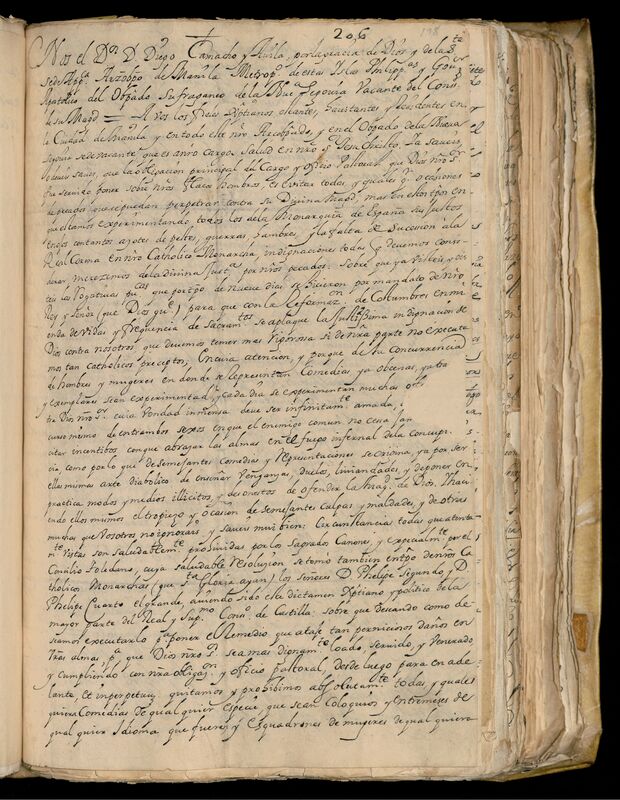 206
Nos el Dor. D. Diego Camacho y Avila, por la gracia de Dios y de la Sta.
Sede Appca. Arzobpo. de Manila Metropno. de estas Yslas Philippas. y Govor.
Apostolico del Obpado. sufraganeo de la Nueva Segovia Vacante del Conso.
de su Magd. = A vos los fieles Xptianos estantes, havitantes y residentes en
la Ciudad de Manila y en todo este nro Arzobpado, y en el Obpado de la Nueva
Segovia sede vacante que es a nro cargo. Salud en nro Sr. Jesu Christo. Ya saveis,
o deveis saver, que la obligacion principal del Cargo y officio Pastoral, que Dios nro Sr.
fue servido poner sobre nros flacos hombros, es evitar todas, y qualesqa. ocasiones
de pecados que se puedan perpetrar contra su Divina Magd. mas en estos tpos en
que estamos experimentando todos los de la Monarquia de España su justos
enojos con tantos azotes de pestes, guerras, hambres, y la falta de sucesion a la
Real Corona en nro Catholico Monarcha, indignaciones todas q devemos consi-
derar, merezemos de la Divina Justa. por nros pecados. Sobre que ya visteis, y ois-
teis las Rogativas pucas que por tpo de nueve dias se hicieron por mandato de nro
Rey y Señor (que Dios gue.) para que con la Reformazon. de Costumbres enmi-
enda de vidas y frequencia de Sacramtos se aplaque la Justissima indignacion de
Dios contra nosotros que devemos temer mas rigorosa si de nra parte no executa
mos tan catholicos preceptos; En cuia atencion, y porque de la Concurrencia
de hombres y mugeres en donde se Representan Comedias, ya obcenas, ya tra
y exemplares se an experimentado, y cada dia se experimentan muchas offs.
tra Dios nro Sr. cuia Vondad inmensa deve ser infinitamte. amada,
curso mismo de entrambos sexos en que el enemigo comun no cesa
citar incentibos con que abrazar las almas en el fuego infernal de la Concupi-
cia, como por lo que de semejantes Comedias, y Representaciones se origina, ya por ser
ellas mismas arte diabolico de enseñar Venganzas, duelos, liviandades, y deponer en
practica modos y medios illicitos, y desonestos de ofender la Magd. de Dios, Ihaci
endo ellos mismos el tropiezo y ocasion de semejantes culpas y maldades, y de otras
muchas que Vosotros no ignorais, y saveis mui bien: Circunstancia todas que atenta-
mte. Vistas son saludablemte. prohividas por los Sagrados Canones, y expecialmte. por el
Concilio Toledano, cuya saludable Resolucion se tomo tambien en tpo de nros Ca
tholicos Monarchas (que Sta. Gloria ayan) los señores D. Phelipe Segundo, y D.
Phelipe Cuarto el grande, aviendo sido este dictamen Xptiano y politico de la
mayor parte del Real y Supmo. Conso. de Castilla: Sobre que devando como de-
seamos executarlo pa. poner el Remedio, que ataje tan perniciosos daños en
Vras almas pa. que Dios nro Sr. sea mas dignamte. loado, servido, y Venerado
y Cumpliendo con nra obligazon. y officio pastoral, desde luego para en ade-
lante, et inperpetuum quitamos y prohibimos absolutamte. todas y quales
quiera Comedias de qual quier Especie, que sean Coloquios y entremezes de
qual quier Idioma que fueren y Esquadrones de mugeres de qual quiera